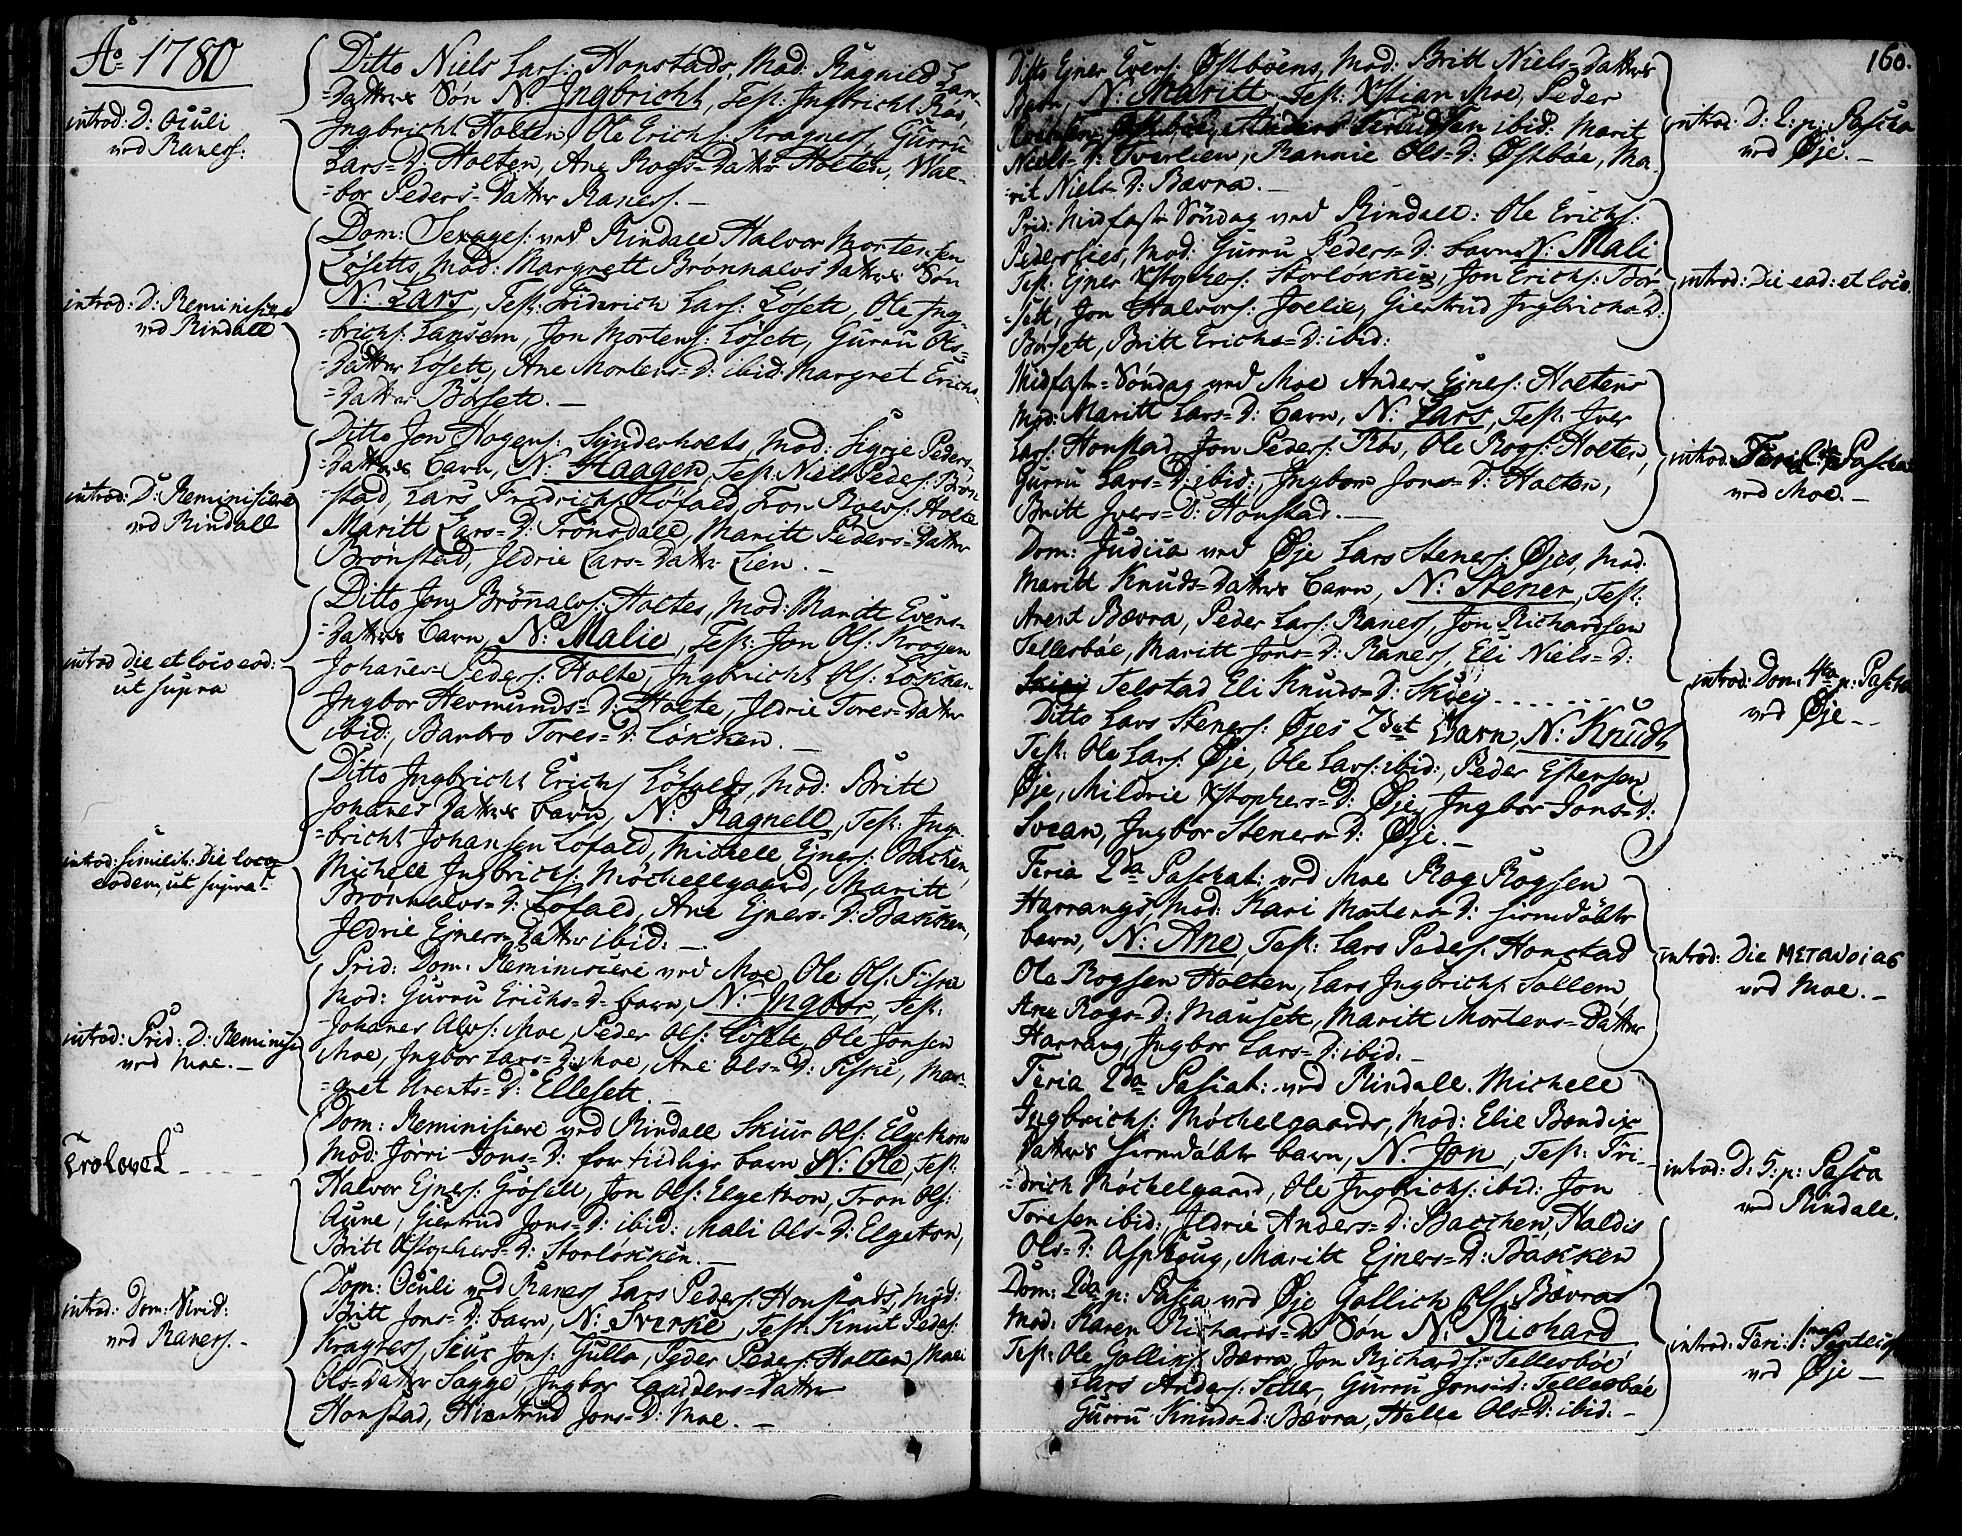 Ao 1780
introd: D: Oculi
ved Ranes:
Ditto Niels Lars: Honstads, Mod: Ragnild Lar-
=Datters Søn N: Ingbricht, Test: Ingbricht Røv,
Ingbricht Holten, Ole Erichs: Kragness, Gurru
Lars=D: Holten, Ane Rogs=Datter Holten, Wal-
=bor Peders=Datter Ranes. —
introd: D: Reminiscere
ved Rindall
Dom: Sexages: ved Rindall Halvor Mortensen
Løsetts, Mod: Margrett Brønhalvs Datters Søn
N: Lars, Test: Friderich Lars: Løsett, Ole Ing-
=brichs: Langsem, Jon Mortens: Løsett, Gurru Ols=
=Datter Løsett, Ane Mortens=D: ibid: Margret Erichs-
=Datter Børsett. —
introd: D: Reminiscere
ved Rindall
Ditto Jon Hogens: Sunderholts, Mod: Sigrie Peders-
=Datters barn, N: Haagen, Test: Niels Peders: Brøn
stad, Lars Fredrichs: Løfald, Tron Rolvs: Holte
Maritt Lars=D: Trønsdale, Maritt Peders=Datter
Brønstad, Jldrie Lars=Datter Lien. —
introd die et loco eod:
ut supra
Ditto Jon Brønalvs: Holtes, Mod: Maritt Evens-
=Datters barn, N: Malie, Test: Jon Ols: Krogen
Johanes Peders: Holte, Ingbricht Ols: Løkken
Ingbor Hermunds=D: Holte, Jldrie Tores=Datter
ibid:, Barbro Tores=D: Løkken. —
introd: similit: Die loco
eodem, ut supra
Ditto Ingbricht Erichs: Løfalds, Mod: Britt
Johanes Datters barn, N: Ragnell, Test: Ing-
=bricht Johansen Løfald, Michell Ejners: Bachen,
Michell Ingbrichs: Møchellgaard, Maritt
Brønhalvs=D: Løfald, Ane Ejners=D: Bakken,
Jldrie Ejners Datter ibid: —
introd: Prid: D: Reminisc
ved Moe. —
Prid: Dom: Reminiscere ved Moe Ole Ols: Fiske
Mod: Gurru Erichs=D: barn, N: Ingbor, Test:
Johanes Alvs: Moe, Peder Ols: Løsett, Ole Jonsen
Moe, Ingbor Lars=D: Moe, Ane Ols=D: Fiske, Mar-
=gret Arents=D: Ellesett. —
Dom: Reminiscere ved Rindall Skiur Ols: Elgetrons
Mod: Jørri Jons=D: for tiidlige barn N: Ole, Test:
Halvor Ejners: Grøsett, Jon Ols: Elgetron, Tron Ols:
Aune, Giertrud Jons=D: ibid: Mali Ols=D: Elgetron,
Britt Xstophers=D: Storløkken. —
introd: Dom: Mivid:
ved Ranes. —
Dom: Oculi ved Ranes Lars Peders: Honstads, Mod:
Britt Jons=D: barn, N: Sverke, Test: Knut Peders:
Kragness, Siur Jons: Gulla, Peder Peders: Holten, Mali
Ols=Datter Sagge, Ingbor Gaddens=Datter
Honstad, Giertrud Jons=D: Moe. —
160.
Ditto Ejner Evens: Østbøens, Mod: Britt Niels=Datters
Barn, N: Maritt, Test: Xstian Moe, Peder
Østbøe, Anders ibid: Marit
Niels=D: Tverlien, Rannie Ols=D: Østbøe, Ma-
rit Niels=D: Bævra. —
introd: D: 2: p: Pascha
ved Øje. —
Prid: Midfast Søndag ved Rindall: Ole Erichs:
Pederslies, Mod: Gurru Peders=D: barn N: Mali
Test: Ejner Xstophers: Storløkken, Jon Erichs: Bør-
sett, Jon Halvors: Joelie, Giertrud Ingbrichs=D:
Børsett, Britt Erichs=D: ibid:
introd: Die ead: et loco.
Midfast=Søndag ved Moe Anders Ejners: Holtens
Mod: Maritt Lars=D: barn, N: Lars, Test: Iver
Lars: Honstad, Jon Peders: Røv, Ole Rogs: Holten,
Gurru Lars=D: ibid:, Ingbor Jons=D: Holten,
Britt Ivers=D: Honstad. —
introd: Feri: Pascha
ved Moe. —
Dom: Judica ved Øje Lars Steners: Øjes, Mod:
Maritt Knuds=Datters barn, N: Stener, Test:
Arent Bævra, Peder Lars: Ranes, Jon Richardsen
Tellesbøe, Maritt Jons=D: Ranes, Eli Niels=D:
Telstad Eli Knuds=D: Skiey.......
Ditto Lars Steners: Øjes 2det Barn, N: Knudt
Test: Ole Lars: Øje, Ole Lars: ibid:, Peder Estensen
Øje, Mildrie Xstophers=D: Øje, Ingbor Jons=D:
Svean, Ingbor Steners=D: Øje. —
introd: Dom: 4ta p: Pascha
ved Øje —
Feria 2da Paschat: ved Moe Rog Rogsen
Harrangs, Mod: Kari Mortens=D: hiemdøbte
barn, N: Ane, Test: Lars Peders: Honstad
Ole Rogsen Holten, Lars Ingbrichs: Sollem,
Ane Rogs=D: Mausett, Maritt Mortens=Datter
Harrang, Ingbor Lars=D: ibid: —
introd: Die Μετανοιας
ved Moe. —
Feria 2da Pascat: ved Rindall. Michell
Ingbrichs: Møchelgaards, Mod: Elie Bendix-
Datters hiemdøbte barn, N: Jon, Test: Fri-
=drich Møchelgaard, Ole Ingbrichs: ibid: Jon
Toresen ibid:, Jldrie Anders=D: Bacchen, Haldis
Ols=D: Asphoug, Maritt Ejners=D: Bakken
introd: D: 5: p: Pasca
ved Rindale.
Dom: 2da p: Pasca ved Øje Gollich Ols: Bævras
Mod: Karen Richards=D: Søn N: Richard
Test: Ole Gollichs: Bævra, Jon Richards: Tellesbøe
Lars Anders: Setter, Gurru Jons=D: Tellesbøe
Gurru Knuds=D: Bævra, Helle Ols=D: ibid. —
introd: Feri: 1ma Pentecost
ved Øje —